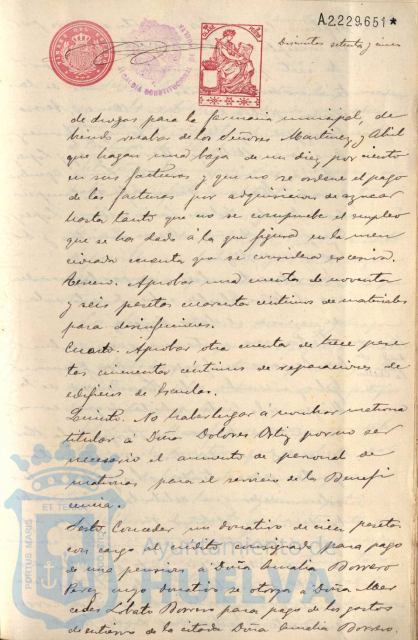 A2.229.651*
Doscientos setenta y cinco
ALCALDIA CONSTITUCIONAL DE
de drogas para la farmacia municipal, de
biendo recabar de los Señores Martinez y Abril
que hagan una baja de un diez por ciento
en sus facturas y que no se ordene el pago
de las facturas por adquisicion de azucar
hasta tanto que no se compruebe el empleo
que se ha dado á la que figura en la men
cionada cuenta que se considera excesiva.
Tercero. Aprobar una cuenta de noventa
y seis pesetas cuarenta céntimos de materiales
para desinfecciones.
Cuarto. Aprobar otra cuenta de trece pese
tas cincuenta céntimos de reparaciones de
edificios de Escuelas.
Quinto. No haber lugar á nombrar matrona
titular á Doña Dolores Ortiz por no ser
necesario el aumento de personal de
matronas para el servicio de la Benefi
cencia.
Sesto. Conceder un donativo de cien pesetas
con cargo al crédito consignado para pago
de una pension á Doña Amalia Borrero
Perez cuyo donativo se otorga á Doña Mer
cedes Lobato Borrero para pago de los gastos
de entierro de la citada Doña Amalia Borrero,
PORTUS MARIS
ET TERRAE
Ayuntamiento de
HUELVA